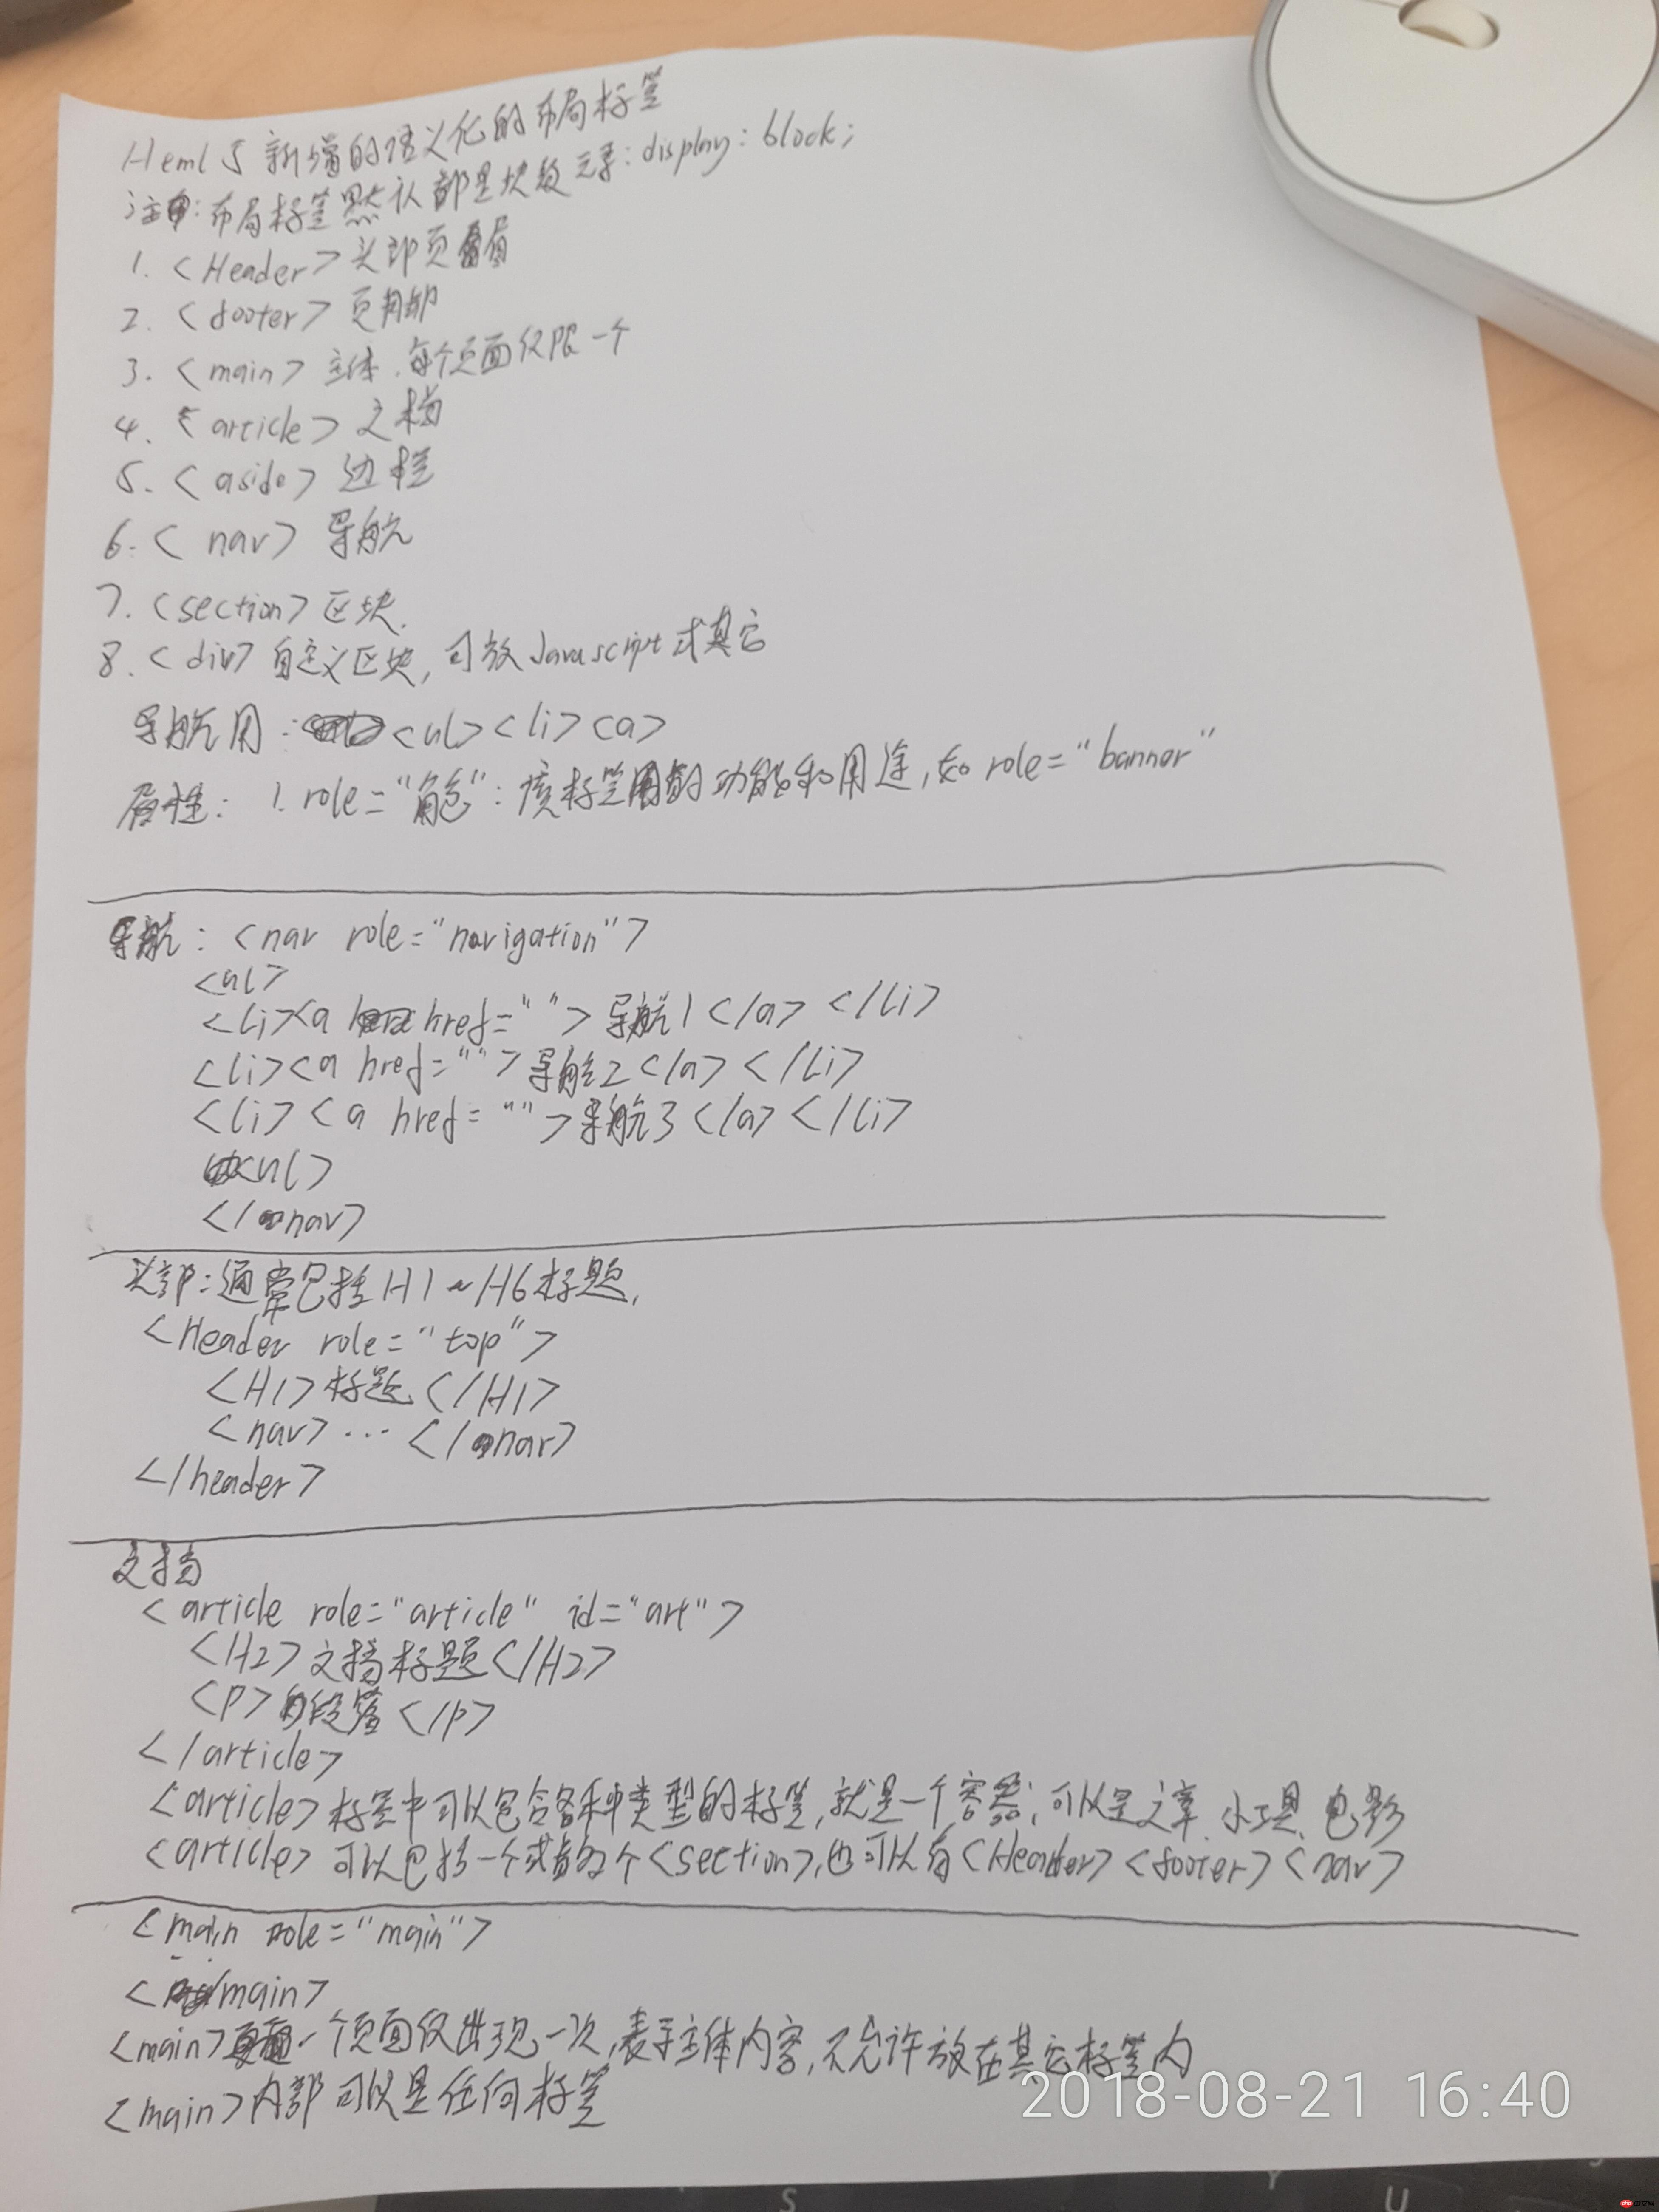 Heml 5 新增的语义化的布局标签
注: 布局标签默认都是块级元素: display: block;
1. <Header> 头部页眉
2. <footer> 页脚部
3. <main> 主体、每个页面仅限一个
4. <article> 文档
5. <aside> 边栏
6. <nav> 导航
7. <section> 区块.
8. <div> 自定义区块, 可放Javascript或其它
导航用: <ul><li><a>
属性: 1. role="角色": 该标签的功能和用途, 如 role="banner"
导航: <nav role="navigation">
<ul>
<li><a href=" "> 导航1 </a> </li>
<li><a href=""> 导航2 </a> </li>
<li><a href=""> 导航3 </a> </li>
<ul>
</nav>
头部: 通常包括H1~H6标题,
<Header role="top">
<H1> 标题 </H1>
<nav> ... </nav>
</header>
文挡
<article role="article" id="art">
<H2> 文挡标题 </H2>
<p> 段落 </p>
</article>
<article> 标签中可以包含各种类型的标签, 就是一个容器; 可以是文章、小工具、电影
<article> 可以包括一个或者多个<section>, 也可以有<Header><footer><nav>
<main role="main">
</main>
<main> 一个页面仅出现一次, 表示主体内容, 不允许放在其它标签内
<main> 内部可以是任何标签
2018-08-21 16:40
S
Y
U